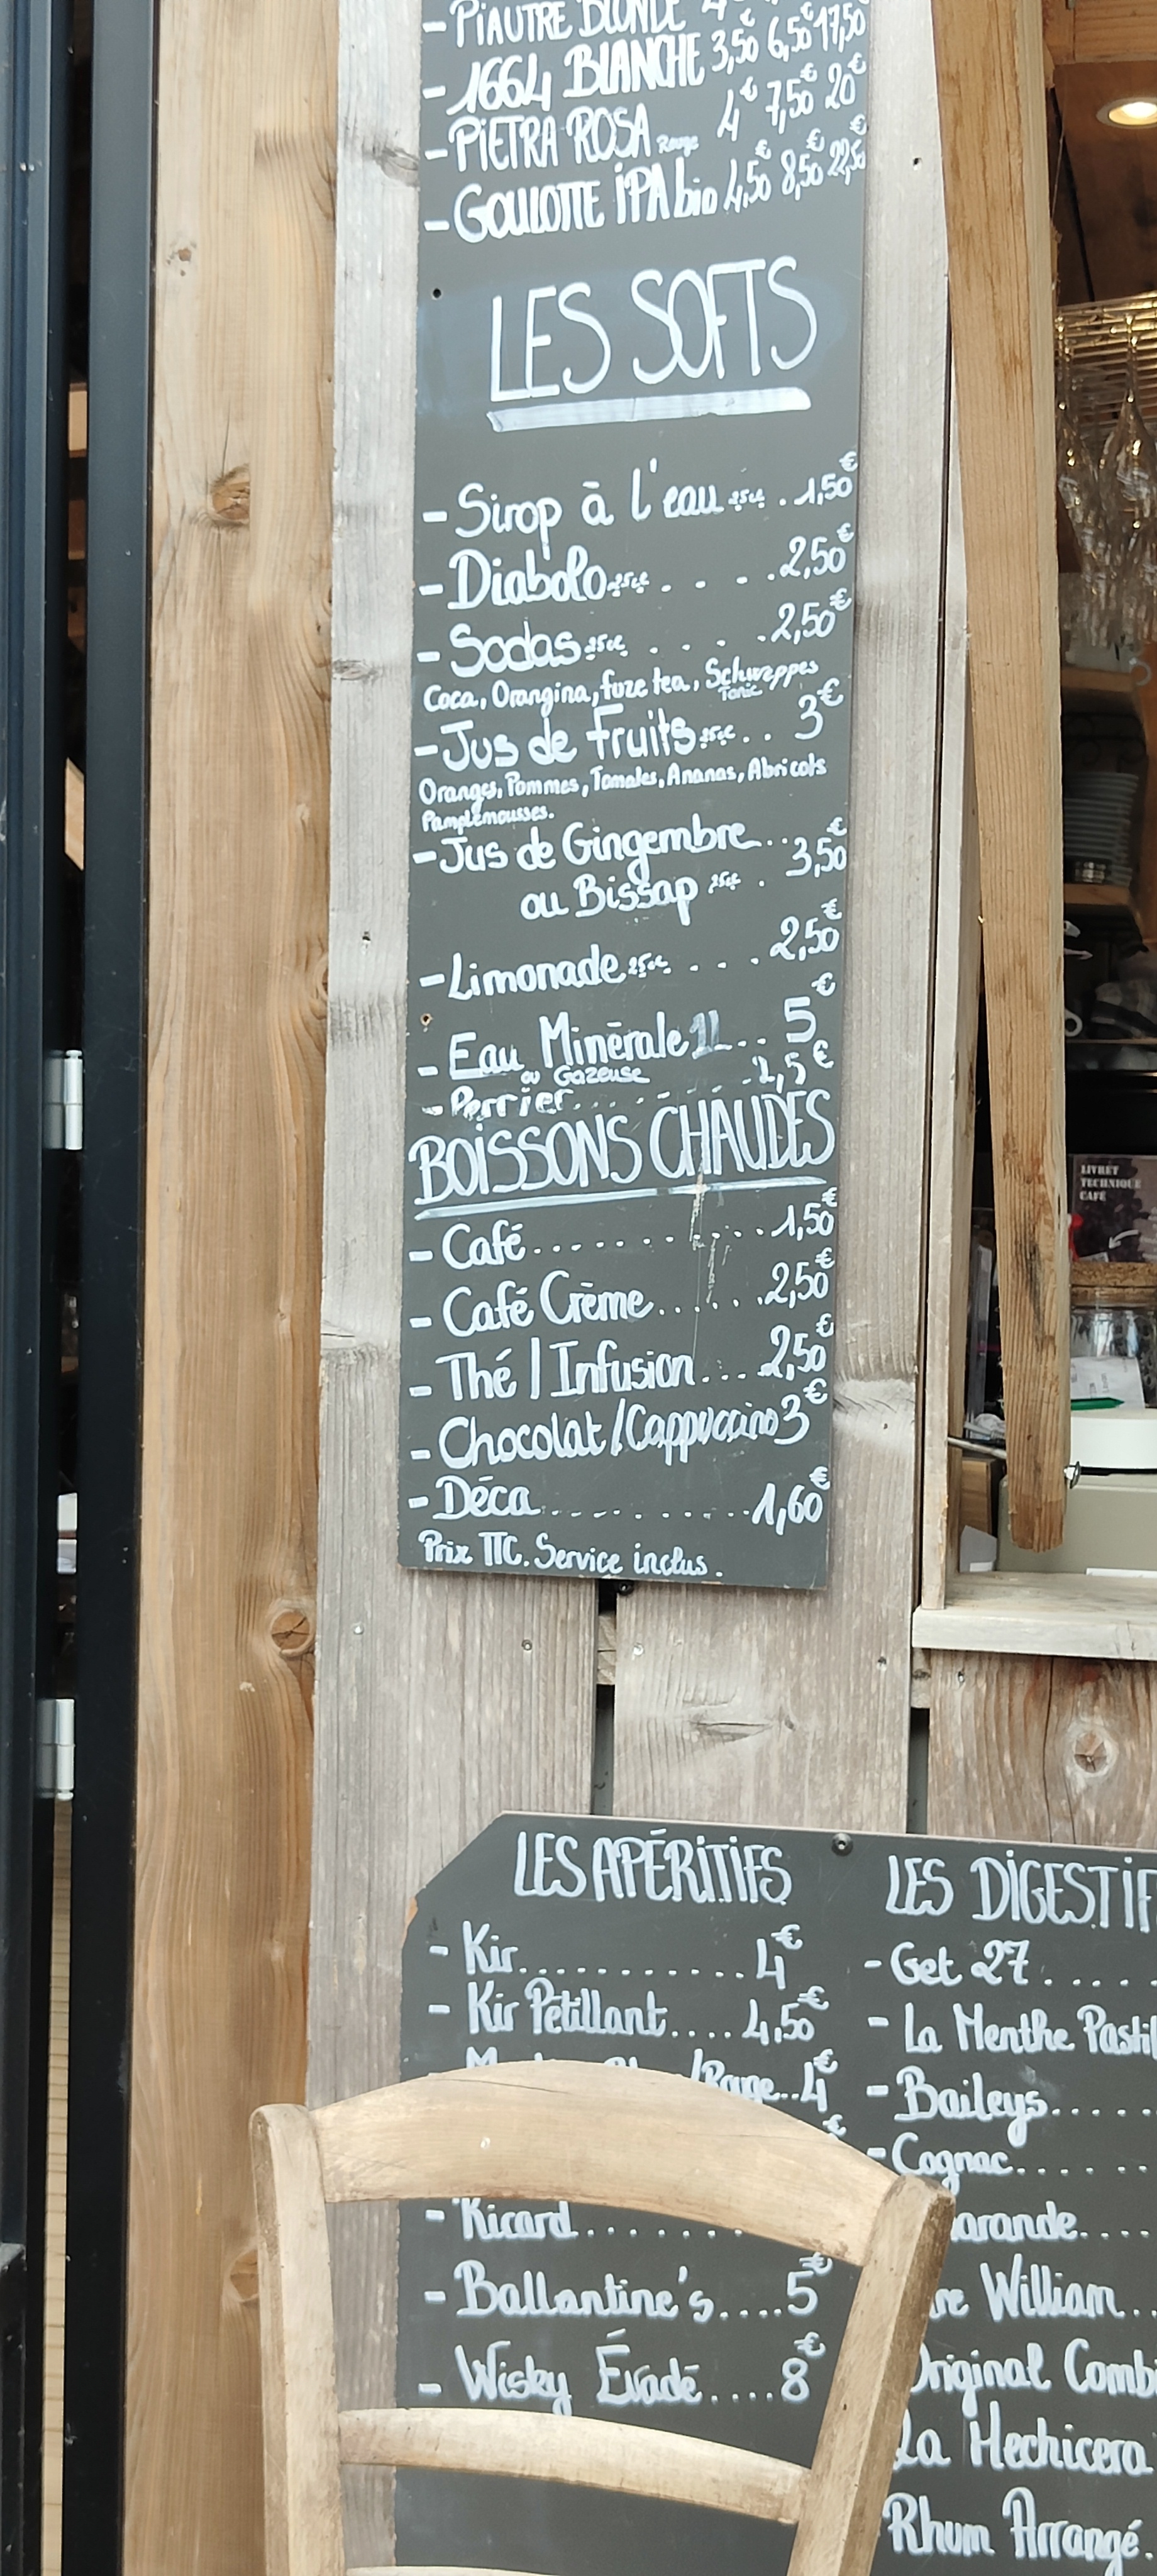 - PIAUTRE BLONDE
- 1664 BLANCHE 3,50€ 6,50€ 17,50
- PIETRA ROSA Rouge 4€ 7,50€ 20€
- GOULOTTE IPA bio 4,50€ 8,50€ 22,50€
LES SOFTS
- Sirop à l'eau 25cl . 1,50€
- Diabolo 25cl . . . . 2,50€
- Sodas 25cl . . . . 2,50€
Coca, Orangina, fuze tea, Schweppes
Tonic
- Jus de Fruits 25cl . . 3€
Oranges, Pommes, Tomates, Ananas, Abricots
Pamplemousses.
- Jus de Gingembre . .
ou Bissap 25cl . 3,50€
- Limonade 25cl . . . . 2,50€
- Eau Minérale 1L . . 5€
ou Gazeuse
- Perrier . . . . . . . . 2,5€
BOISSONS CHAUDES
- Café . . . . . . . . . . 1,50€
- Café Crème . . . . . . 2,50€
- Thé / Infusion . . . 2,50€
- Chocolat / Cappuccino 3€
- Déca . . . . . . . . . . 1,60€
Prix TTC. Service inclus.
LIVRET
TECHNIQUE
CAFÉ
LES APÉRITIFS
- Kir . . . . . . . . . . . 4€
- Kir Pétillant . . . . 4,50€
/Rouge . . 4€
- Ricard . . . . . . .
- Ballantine's . . . . 5€
- Wisky Évadé . . . . 8€
LES DIGESTIF
- Get 27 . . . .
- La Menthe Pastil
- Baileys . . . .
- Cognac . . . .
arande . . .
re William . .
Original Combi
La Hechicera
Rhum Arrangé .